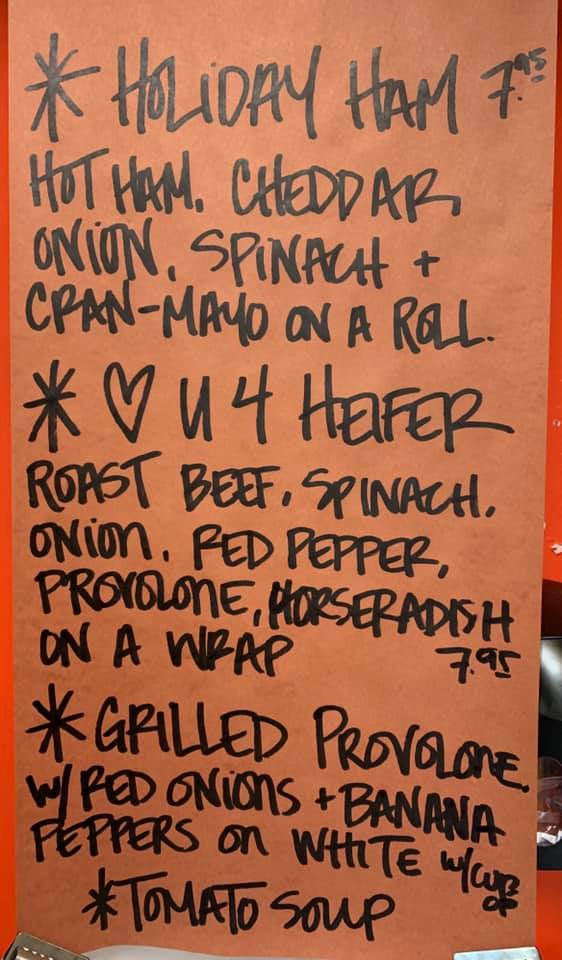 * HOLiDAY HAM 7.95
HOT HAM, CHEDDAR,
ONiON, SPiNACH +
CRAN-MAYO ON A ROLL.
* ♡ U 4 HEIFER
ROAST BEEF, SPINACH,
ONiON, RED PEPPER,
PROVOLONE, HORSERADISH
ON A WRAP 7.95
* GRILLED PROVOLONE
W/ RED ONiONS + BANANA
PEPPERS ON WHITE W/ CUP OF
* TOMATO SOUP